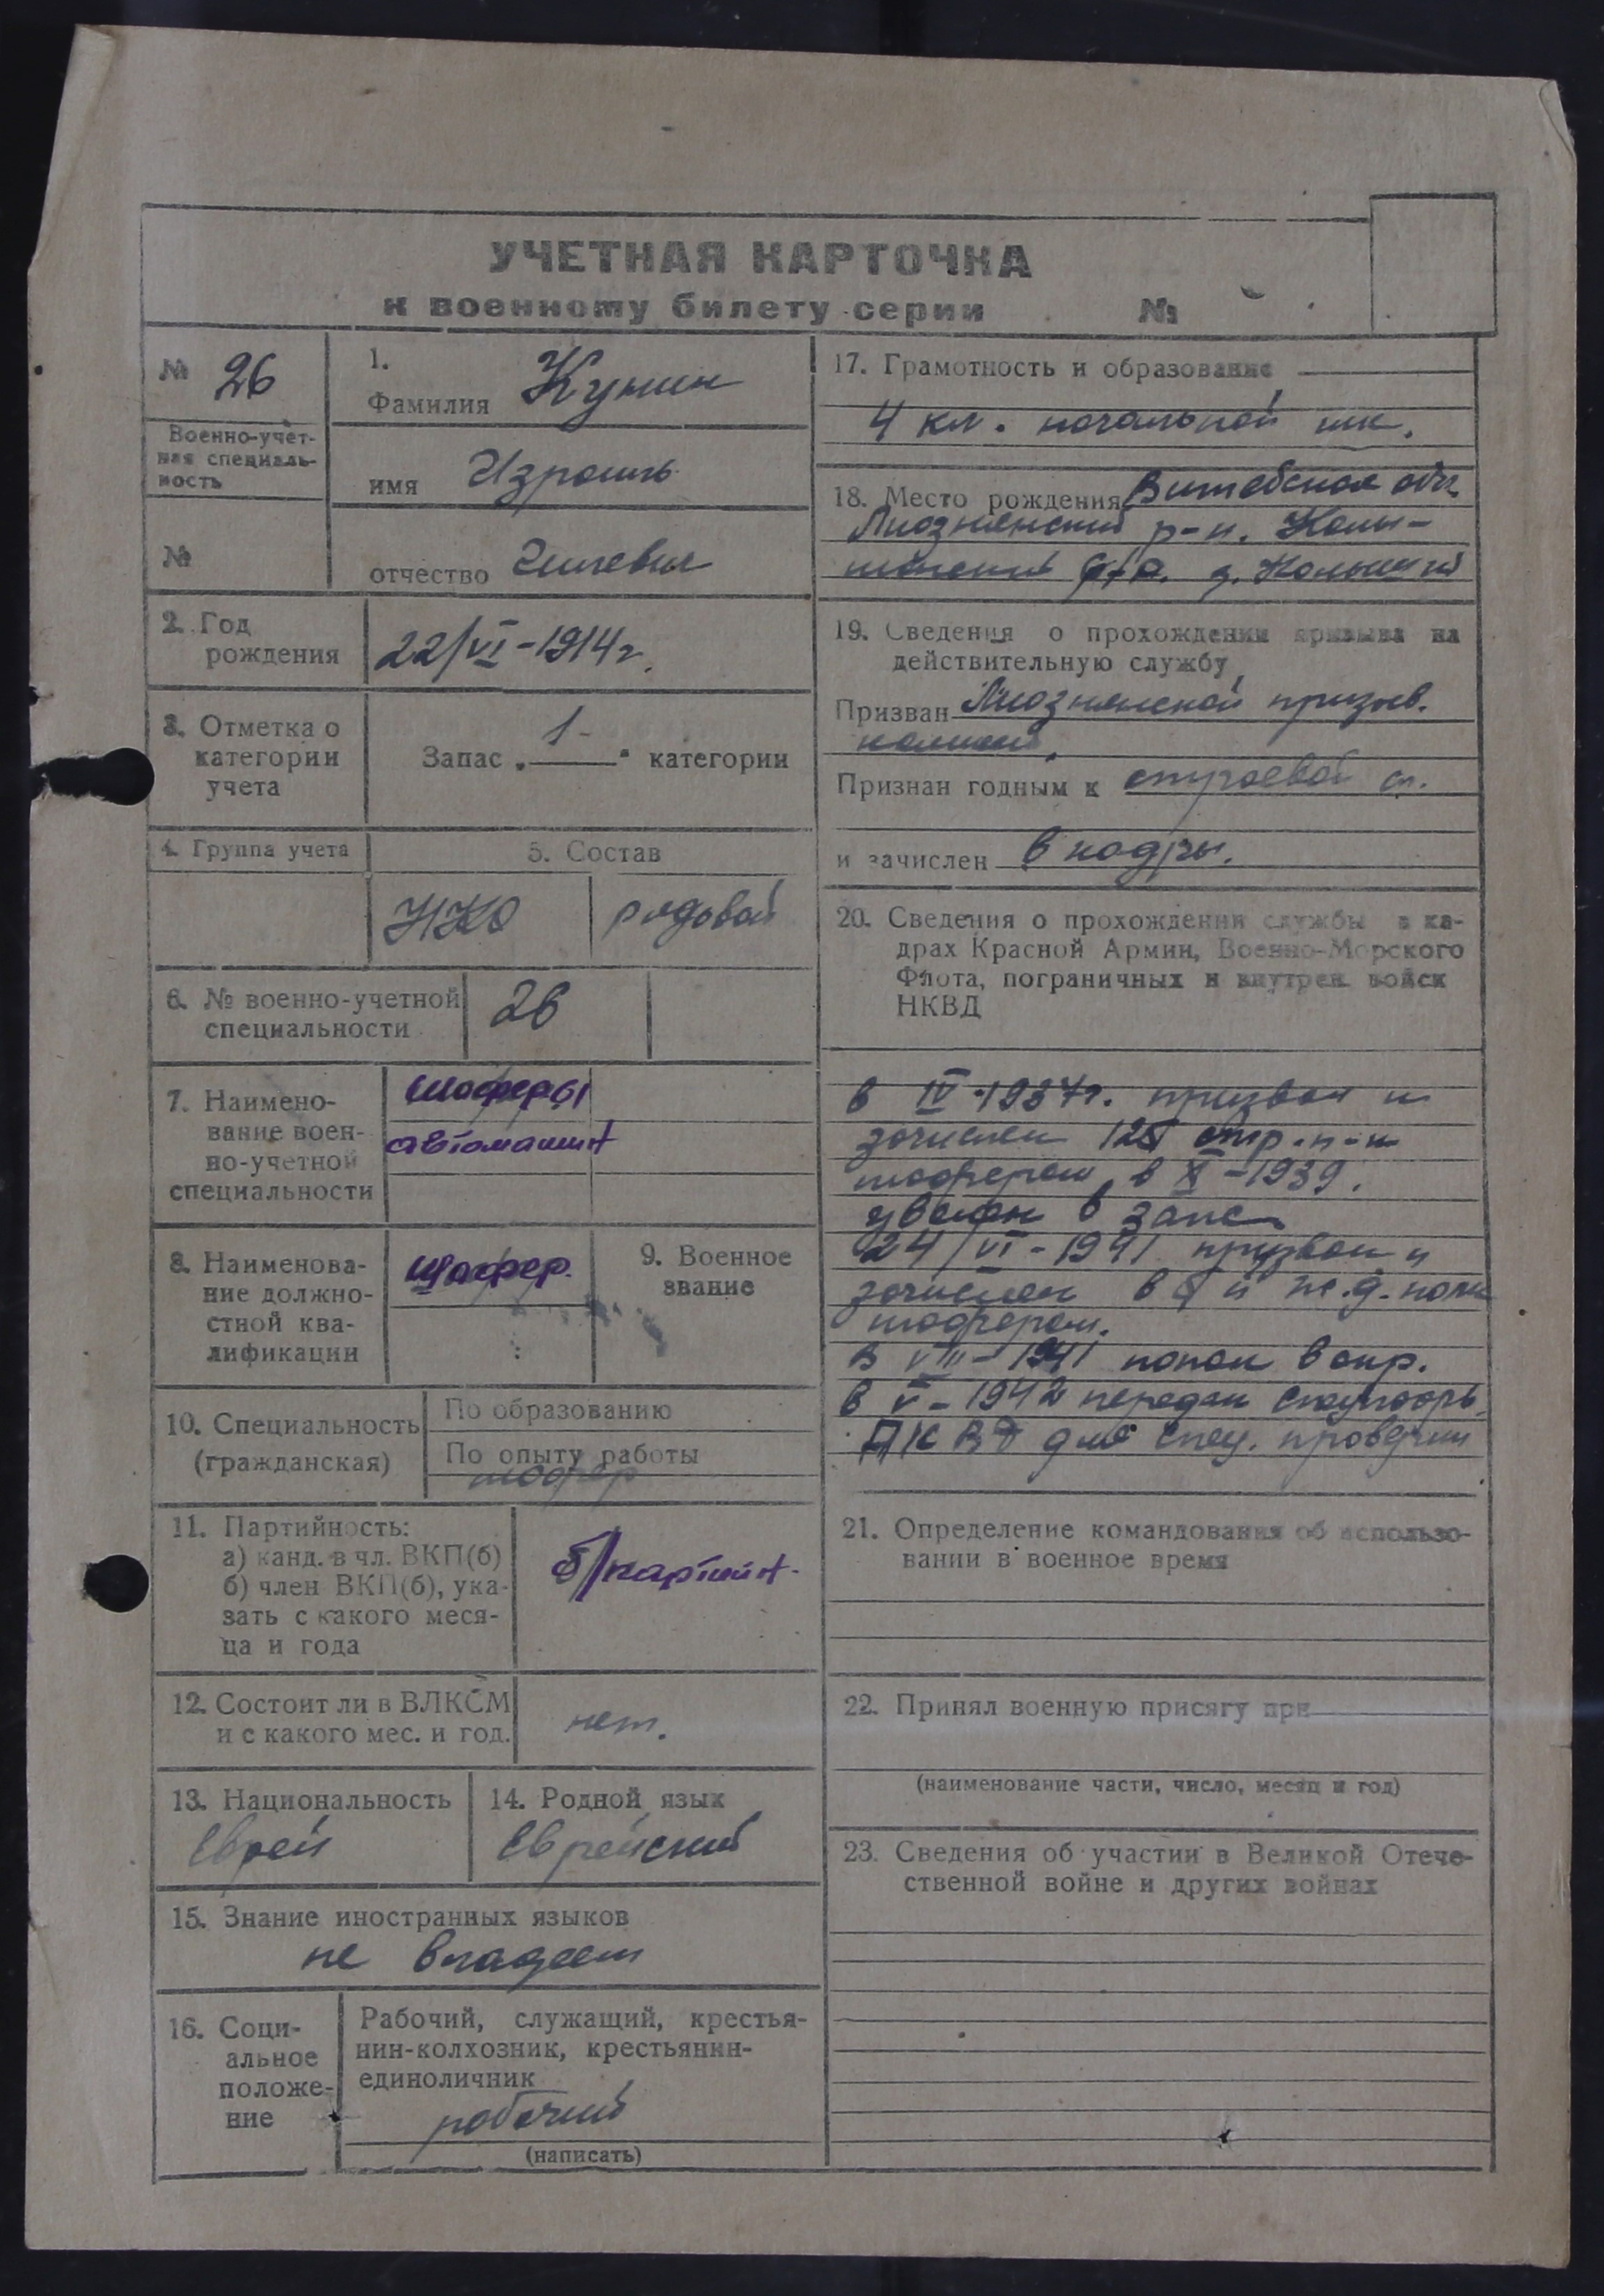 УЧЕТНАЯ КАРТОЧКА
к военному билету серии №
№ 26
Военно-учет-
ная специаль-
ность
№
1.
Фамилия Кунин
имя Израиль
отчество
2. Год
рождения
22/VI-1914 г.
3. Отметка о
категории
учета
Запас „ 1 - " категории
4. Группа учета
5. Состав
НКО
рядовой
6. № военно-учетной
специальности
26
7. Наимено-
вание воен-
но-учетной
специальности
шоферы
автомашин
8. Наименова-
ние должно-
стной ква-
лификации
шофер.
9. Военное
звание
10. Специальность
(гражданская)
По образованию
По опыту работы
шофер
11. Партийность:
а) канд. в чл. ВКП(б)
б) член ВКП(б), ука-
зать с какого меся-
ца и года
б/партийн.
12. Состоит ли в ВЛКСМ
и с какого мес. и год.
нет.
13. Национальность
Еврей
14. Родной язык
Еврейский
15. Знание иностранных языков
не владеет
16. Соци-
альное
положе-
ние
Рабочий, служащий, крестья-
нин-колхозник, крестьянин-
единоличник
рабочий
(написать)
17. Грамотность и образование
4 кл. начальной шк.
18. Место рождения Витебская обл.
Лиозненский р-н. Колы-
шанский с/с. д. Колышки
19. Сведения о прохождении призыва на
действительную службу
Призван Лиозненской призыв.
комисей.
Признан годным к строевой сл.
и зачислен в кадры.
20. Сведения о прохождении службы в ка-
драх Красной Армии, Военно-Морского
Флота, пограничных и внутрен. войск
НКВД
в IV-1937г. призван и
зачислен стр. п-к
шофером, в X-1939.
уволен в запас
24/VI-1941 призван и
зачислен в й ж.д. полк
шофером.
в VIII-1941 попал в окр.
в V-1942 передан
НКВД для спец. проверки
21. Определение командования об использо-
вании в военное время
22. Принял военную присягу при
(наименование части, число, месяц и год)
23. Сведения об участии в Великой Отече-
ственной войне и других войнах